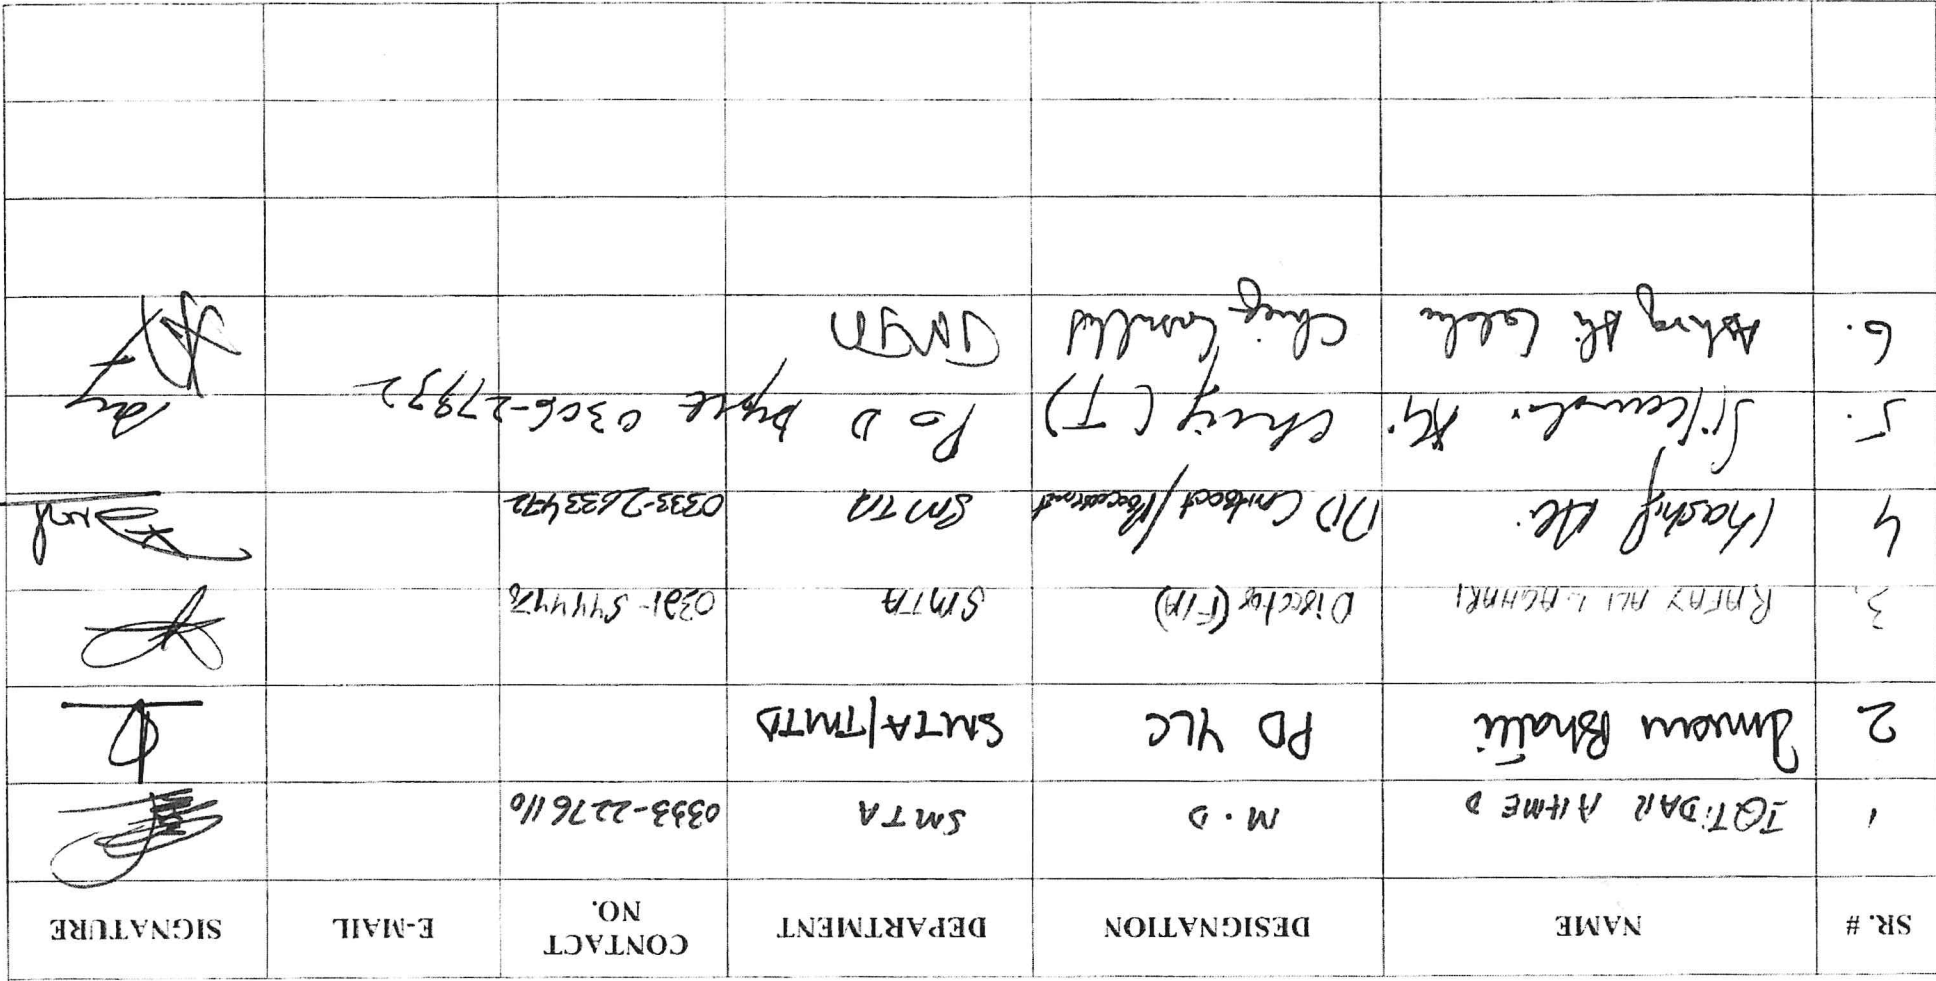 SR. # NAME DESIGNATION DEPARTMENT CONTACT NO. E-MAIL SIGNATURE
1 IQTIDAR AHMED M.D SMTA 0333-2276110
2 Imran Bhatti PD YLC SMTA/TMTD
3. RAFAY ALI LAGHARI Director (F/A) SMTA
4 Kashif Ali DD Contract/Procurement SMTA 0333-2633472
5. Ali Chief (T) P&D 0306-27932
6. Ali Chief